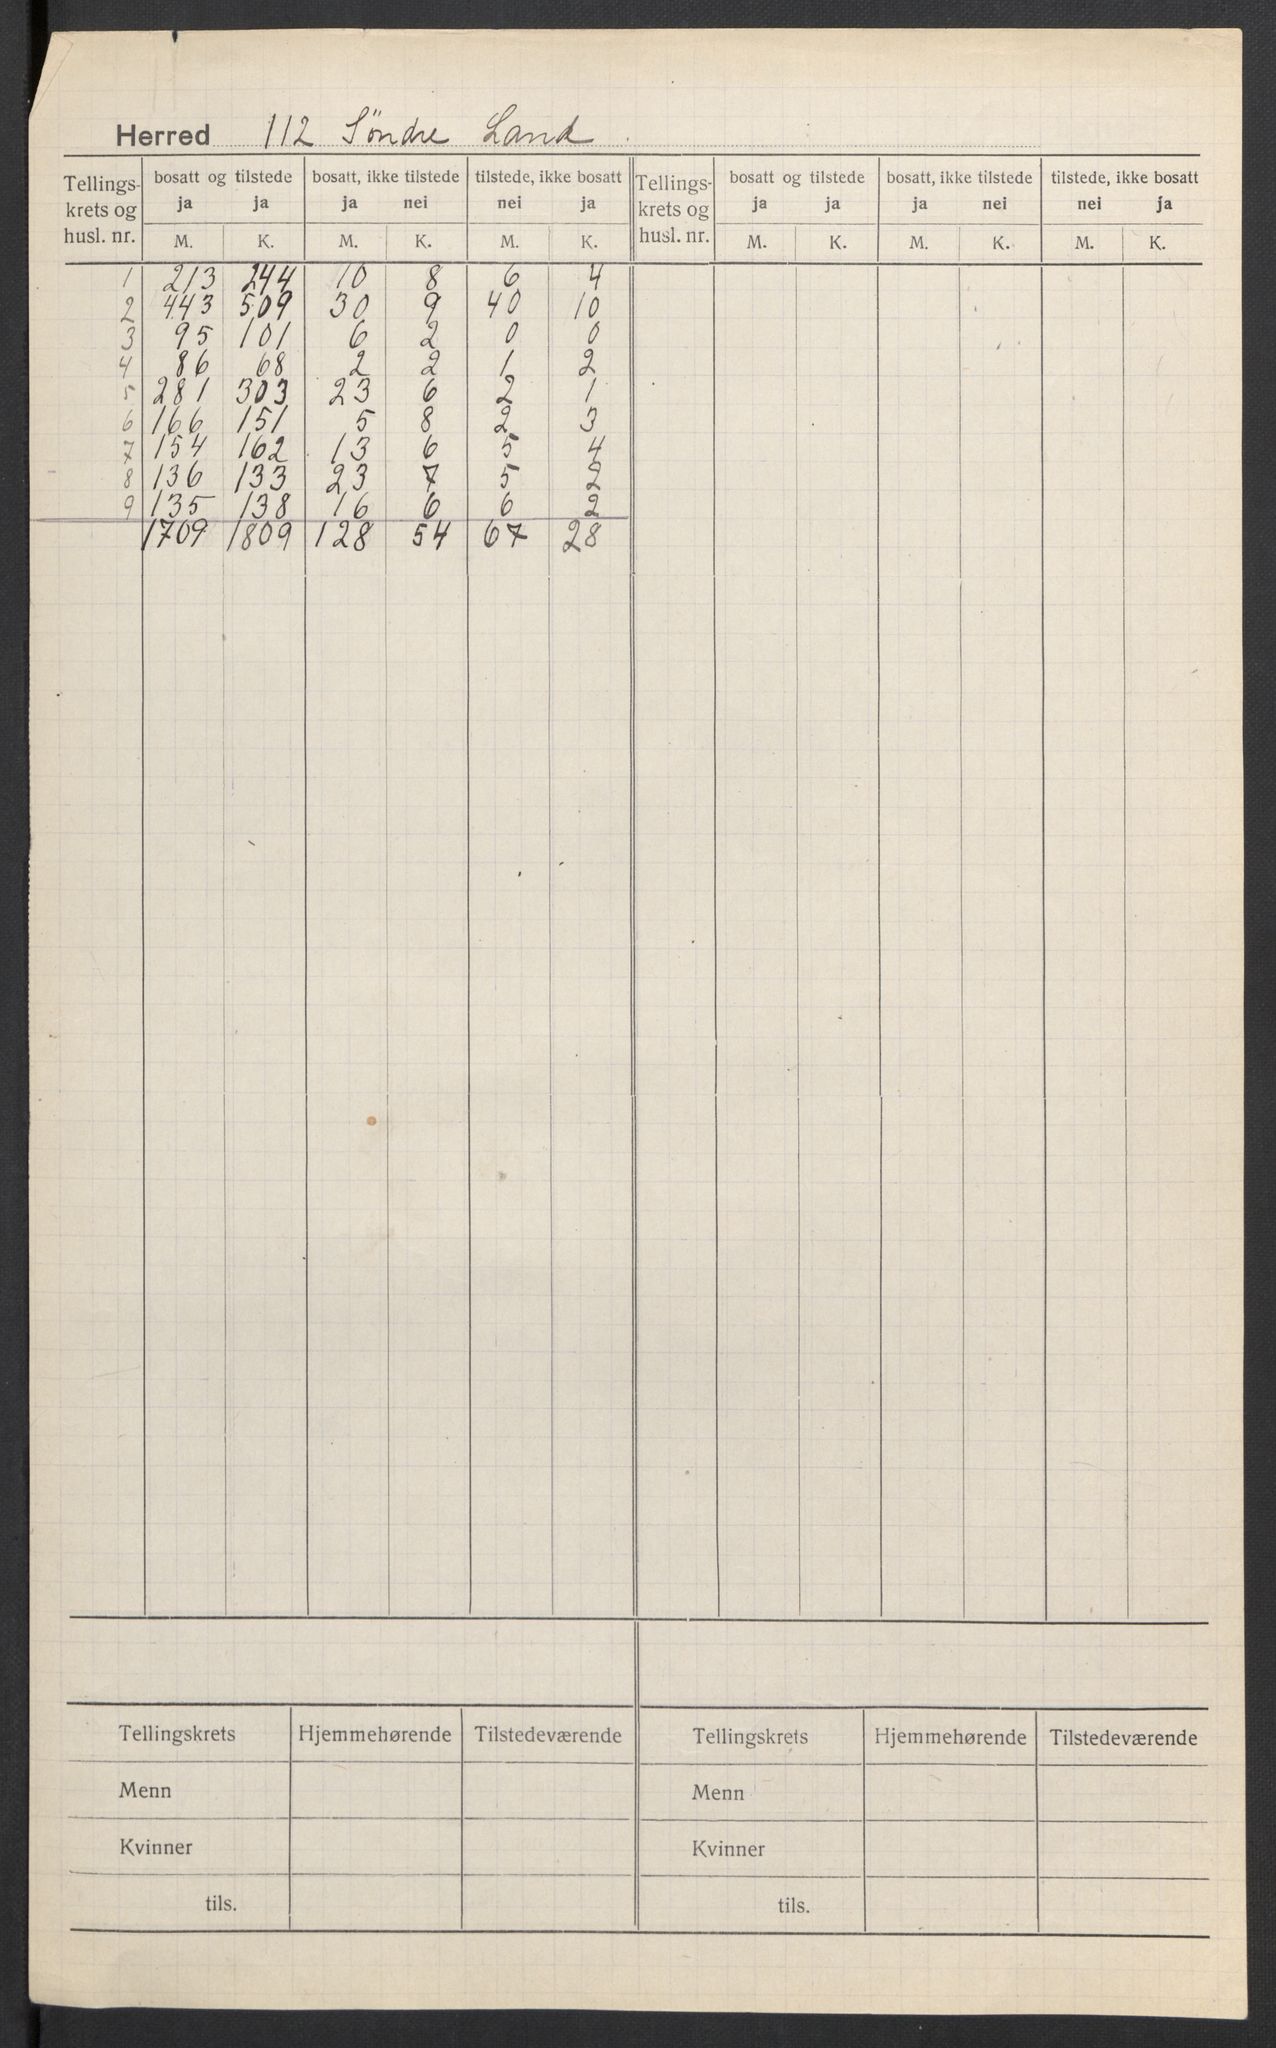 Herred 112 Söndre Land
Tellings- bosatt og tilstede bosatt, ikke tilstede tilstede, ikke bosatt Tellings- bosatt og tilstede bosatt, ikke tilstede tilstede, ikke bosatt
krets og ja ja ja nei nei ja krets og ja ja ja nei nei ja
husl. nr. M. K. M. K. M. K. husl. nr. M. K. M. K. M. K.
1 213 244 10 8 6 4
2 443 509 30 9 40 10
3 95 101 6 2 0 0
4 86 68 2 2 1 2
5 281 303 23 6 2 1
6 166 151 5 8 2 3
7 154 162 13 6 5 4
8 136 133 23 7 5 2
9 135 138 16 6 6 2
1709 1809 128 54 67 28
Tellingskrets Hjemmehørende Tilstedeværende Tellingskrets Hjemmehørende Tilstedeværende
Menn Menn
Kvinner Kvinner
tils. tils.